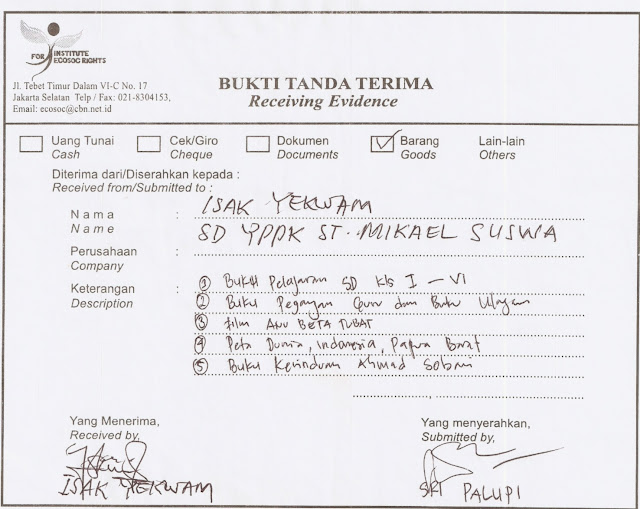 FOR INSTITUTE
ECOSOC RIGHTS
Jl. Tebet Timur Dalam VI-C No. 17
Jakarta Selatan Telp / Fax: 021-8304153,
Email: ecosoc@cbn.net.id
BUKTI TANDA TERIMA
Receiving Evidence
Uang Tunai
Cash
Cek/Giro
Cheque
Dokumen
Documents
Barang
Goods
Lain-lain
Others
Diterima dari/Diserahkan kepada :
Received from/Submitted to :
Nama : ISAK YEKWAM
Name SD YPPK ST. MIKAEL SUSWA
Perusahaan :
Company
Keterangan : ① Buku Pelajaran SD kls I - VI
Description ② Buku Pegangan Guru dan Buku Ulangan
③ Film ANU BETA TUBAT
④ Peta Dunia, Indonesia, Papua Barat
⑤ Buku Kerinduan Ahmad Sobari
Yang Menerima,
Received by,
ISAK YEKWAM
Yang menyerahkan,
Submitted by,
SRI PALUPI